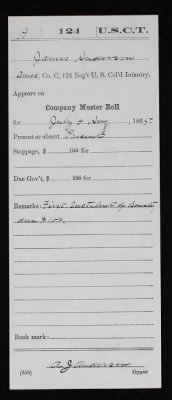 124 U.S.C.T.
James Anderson
Co. C, 124 Reg't U. S. Col'd Infantry.
Appears on
Company Muster Roll
for July & Aug, 1865
Present or absent Present
Stoppage, $ 100 for
Due Gov't, $ 100 for
Remarks: First Instalment of Bounty
due $
Book mark:
(358)
A J Anderson
Copyist